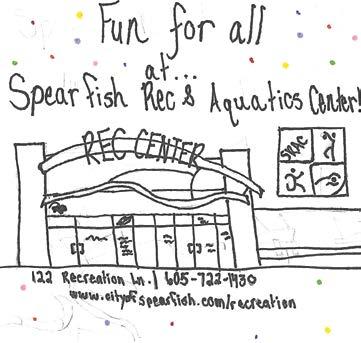 Fun for all
at...
Spearfish Rec & Aquatics Center!
REC CENTER
SRAC
122 Recreation Ln. | 605-722-1430
www.cityofspearfish.com/recreation